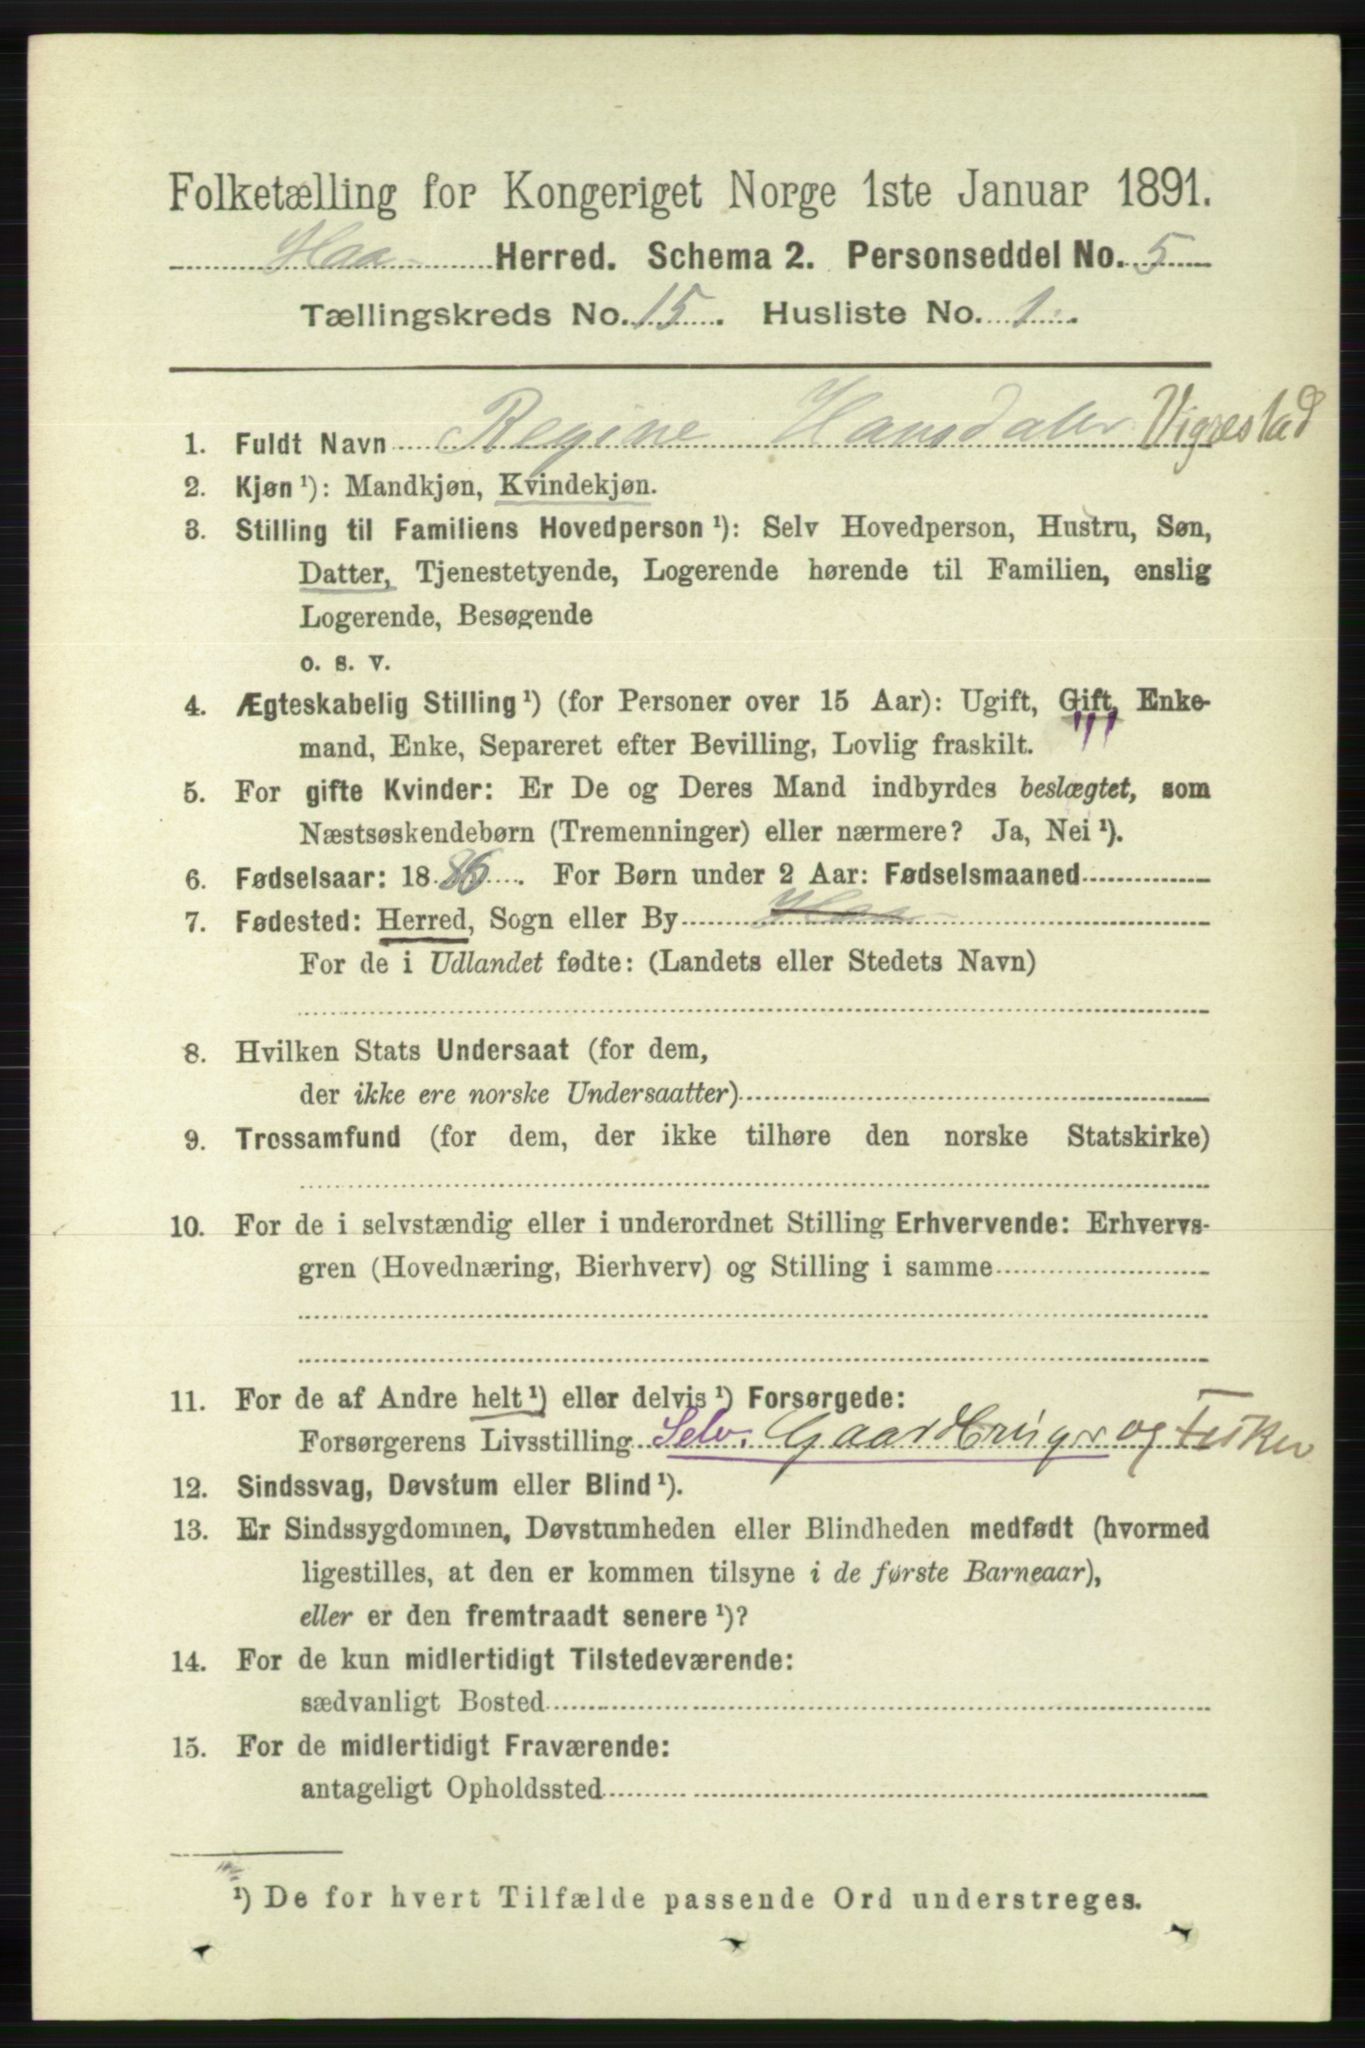 Folketælling for Kongeriget Norge 1ste Januar 1891.
Haa Herred. Schema 2. Personseddel No. 5
Tællingskreds No. 15. Husliste No. 1.
1. Fuldt Navn Regine Hansdatter Vigrestad
2. Kjøn ¹): Mandkjøn, Kvindekjøn.
3. Stilling til Familiens Hovedperson ¹): Selv Hovedperson, Hustru, Søn,
Datter, Tjenestetyende, Logerende hørende til Familien, enslig
Logerende, Besøgende
o. s. v.
4. Ægteskabelig Stilling ¹) (for Personer over 15 Aar): Ugift, Gift, Enke-
mand, Enke, Separeret efter Bevilling, Lovlig fraskilt.
5. For gifte Kvinder: Er De og Deres Mand indbyrdes beslægtet, som
Næstsøskendebørn (Tremenninger) eller nærmere? Ja, Nei ¹).
6. Fødselsaar: 1886. For Børn under 2 Aar: Fødselsmaaned
7. Fødested: Herred, Sogn eller By Haa
For de i Udlandet fødte: (Landets eller Stedets Navn)
8. Hvilken Stats Undersaat (for dem,
der ikke ere norske Undersaatter)
9. Trossamfund (for dem, der ikke tilhøre den norske Statskirke)
10. For de i selvstændig eller i underordnet Stilling Erhvervende: Erhvervs-
gren (Hovednæring, Bierhverv) og Stilling i samme
11. For de af Andre helt ¹) eller delvis ¹) Forsørgede:
Forsørgerens Livsstilling Selv. Gaardbruger og Fisker
12. Sindssvag, Døvstum eller Blind ¹).
13. Er Sindssygdommen, Døvstumheden eller Blindheden medfødt (hvormed
ligestilles, at den er kommen tilsyne i de første Barneaar),
eller er den fremtraadt senere ¹)?
14. For de kun midlertidigt Tilstedeværende:
sædvanligt Bosted
15. For de midlertidigt Fraværende:
antageligt Opholdssted
¹) De for hvert Tilfælde passende Ord understreges.